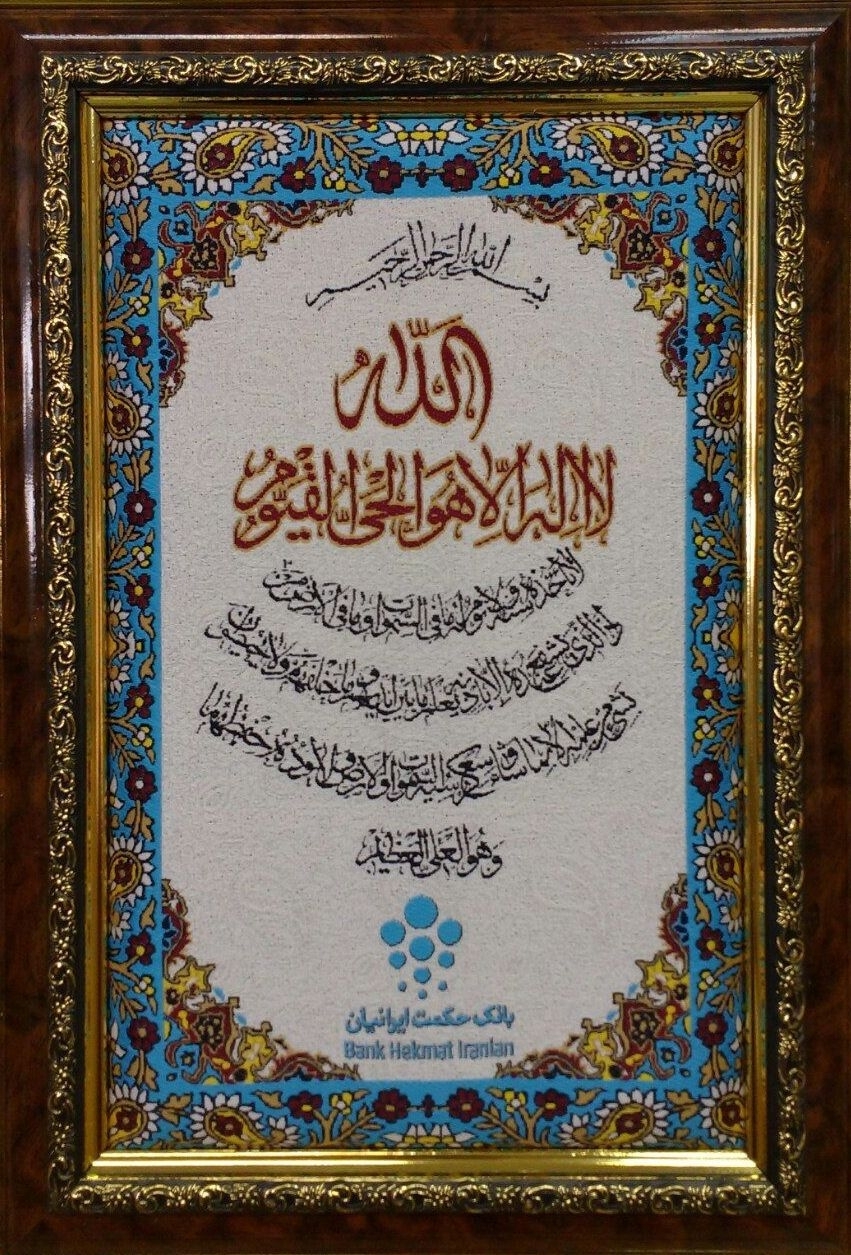 بسم الله الرحمن الرحیم
الله
لا اله الا هو الحی القیوم
لا تأخذه سنة ولا نوم له ما فی السموات وما فی الارض من
ذا الذی یشفع عنده الا باذنه یعلم ما بین ایدیهم وما خلفهم ولا یحیطون
بشیء من علمه الا بما شاء وسع کرسیه السموات والارض ولا یؤده حفظهما
وهو العلی العظیم
بانک حکمت ایرانیان
Bank Hekmat Iranian